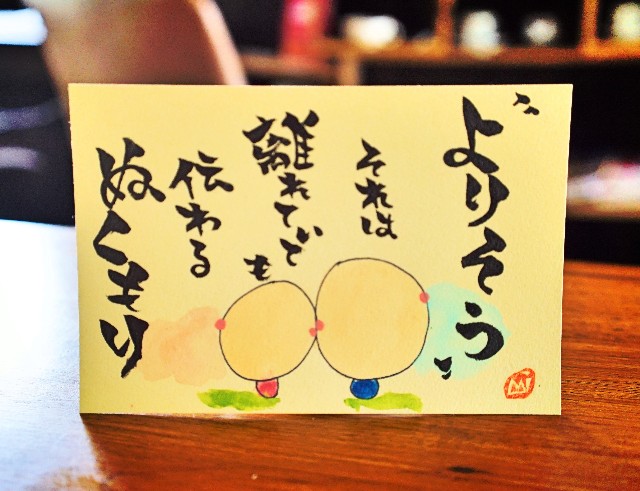 〝よりそう〟
それは
離れていても
伝わる
ぬくもり